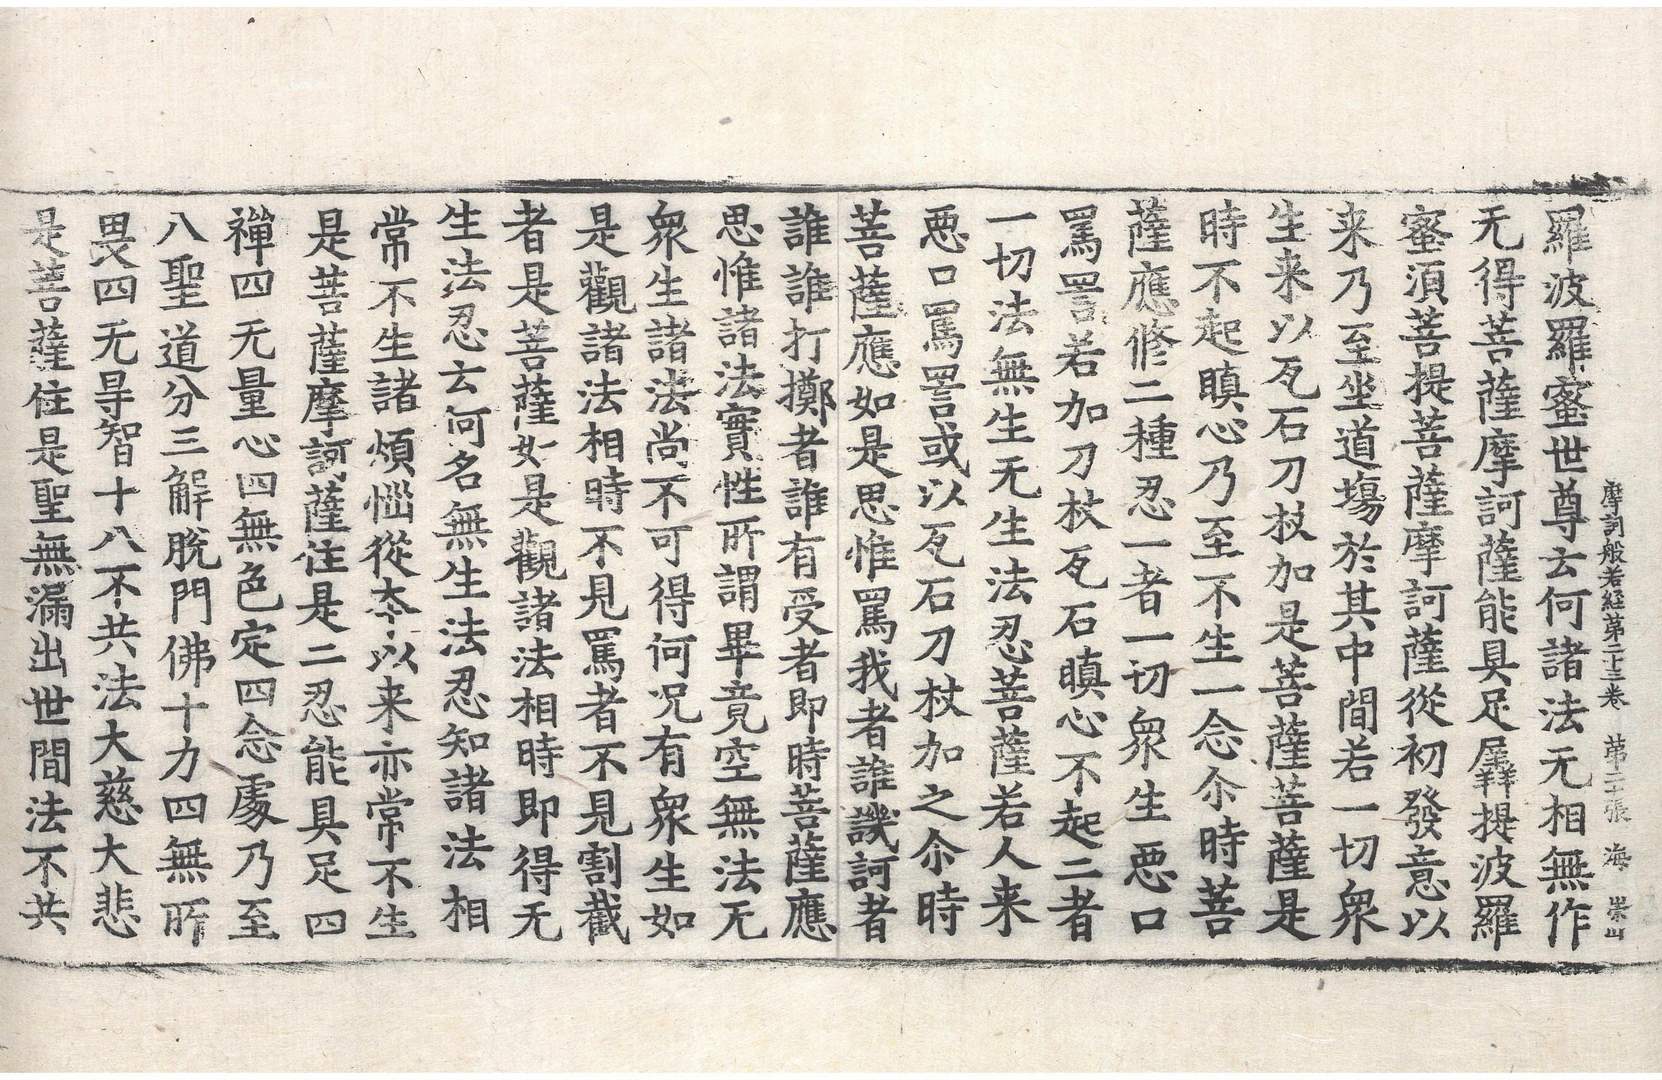 摩訶般若経第二十三卷 第二十張 海 崇山
羅波羅蜜世尊云何諸法无相無作
无得菩薩摩訶薩能具足羼提波羅
蜜湏菩提菩薩摩訶薩從初發意以
来乃至坐道場於其中間若一切衆
生来以瓦石刀杖加是菩薩菩薩是
時不起瞋心乃至不生一念尒時菩
薩應修二種忍一者一切衆生惡口
罵詈若加刀杖瓦石瞋心不起二者
一切法無生无生法忍菩薩若人来
惡口罵詈或以瓦石刀杖加之尒時
菩薩應如是思惟罵我者誰譏訶者
誰誰打擲者誰有受者即時菩薩應
思惟諸法實性所謂畢竟空無法无
衆生諸法尚不可得何况有衆生如
是觀諸法相時不見罵者不見割截
者是菩薩如是觀諸法相時即得无
生法忍云何名無生法忍知諸法相
常不生諸煩惱從本以来亦常不生
是菩薩摩訶薩住是二忍能具足四
禪四无量心四無色定四念處乃至
八聖道分三解脫門佛十力四無所
畏四无㝵智十八不共法大慈大悲
是菩薩住是聖無漏出世間法不共